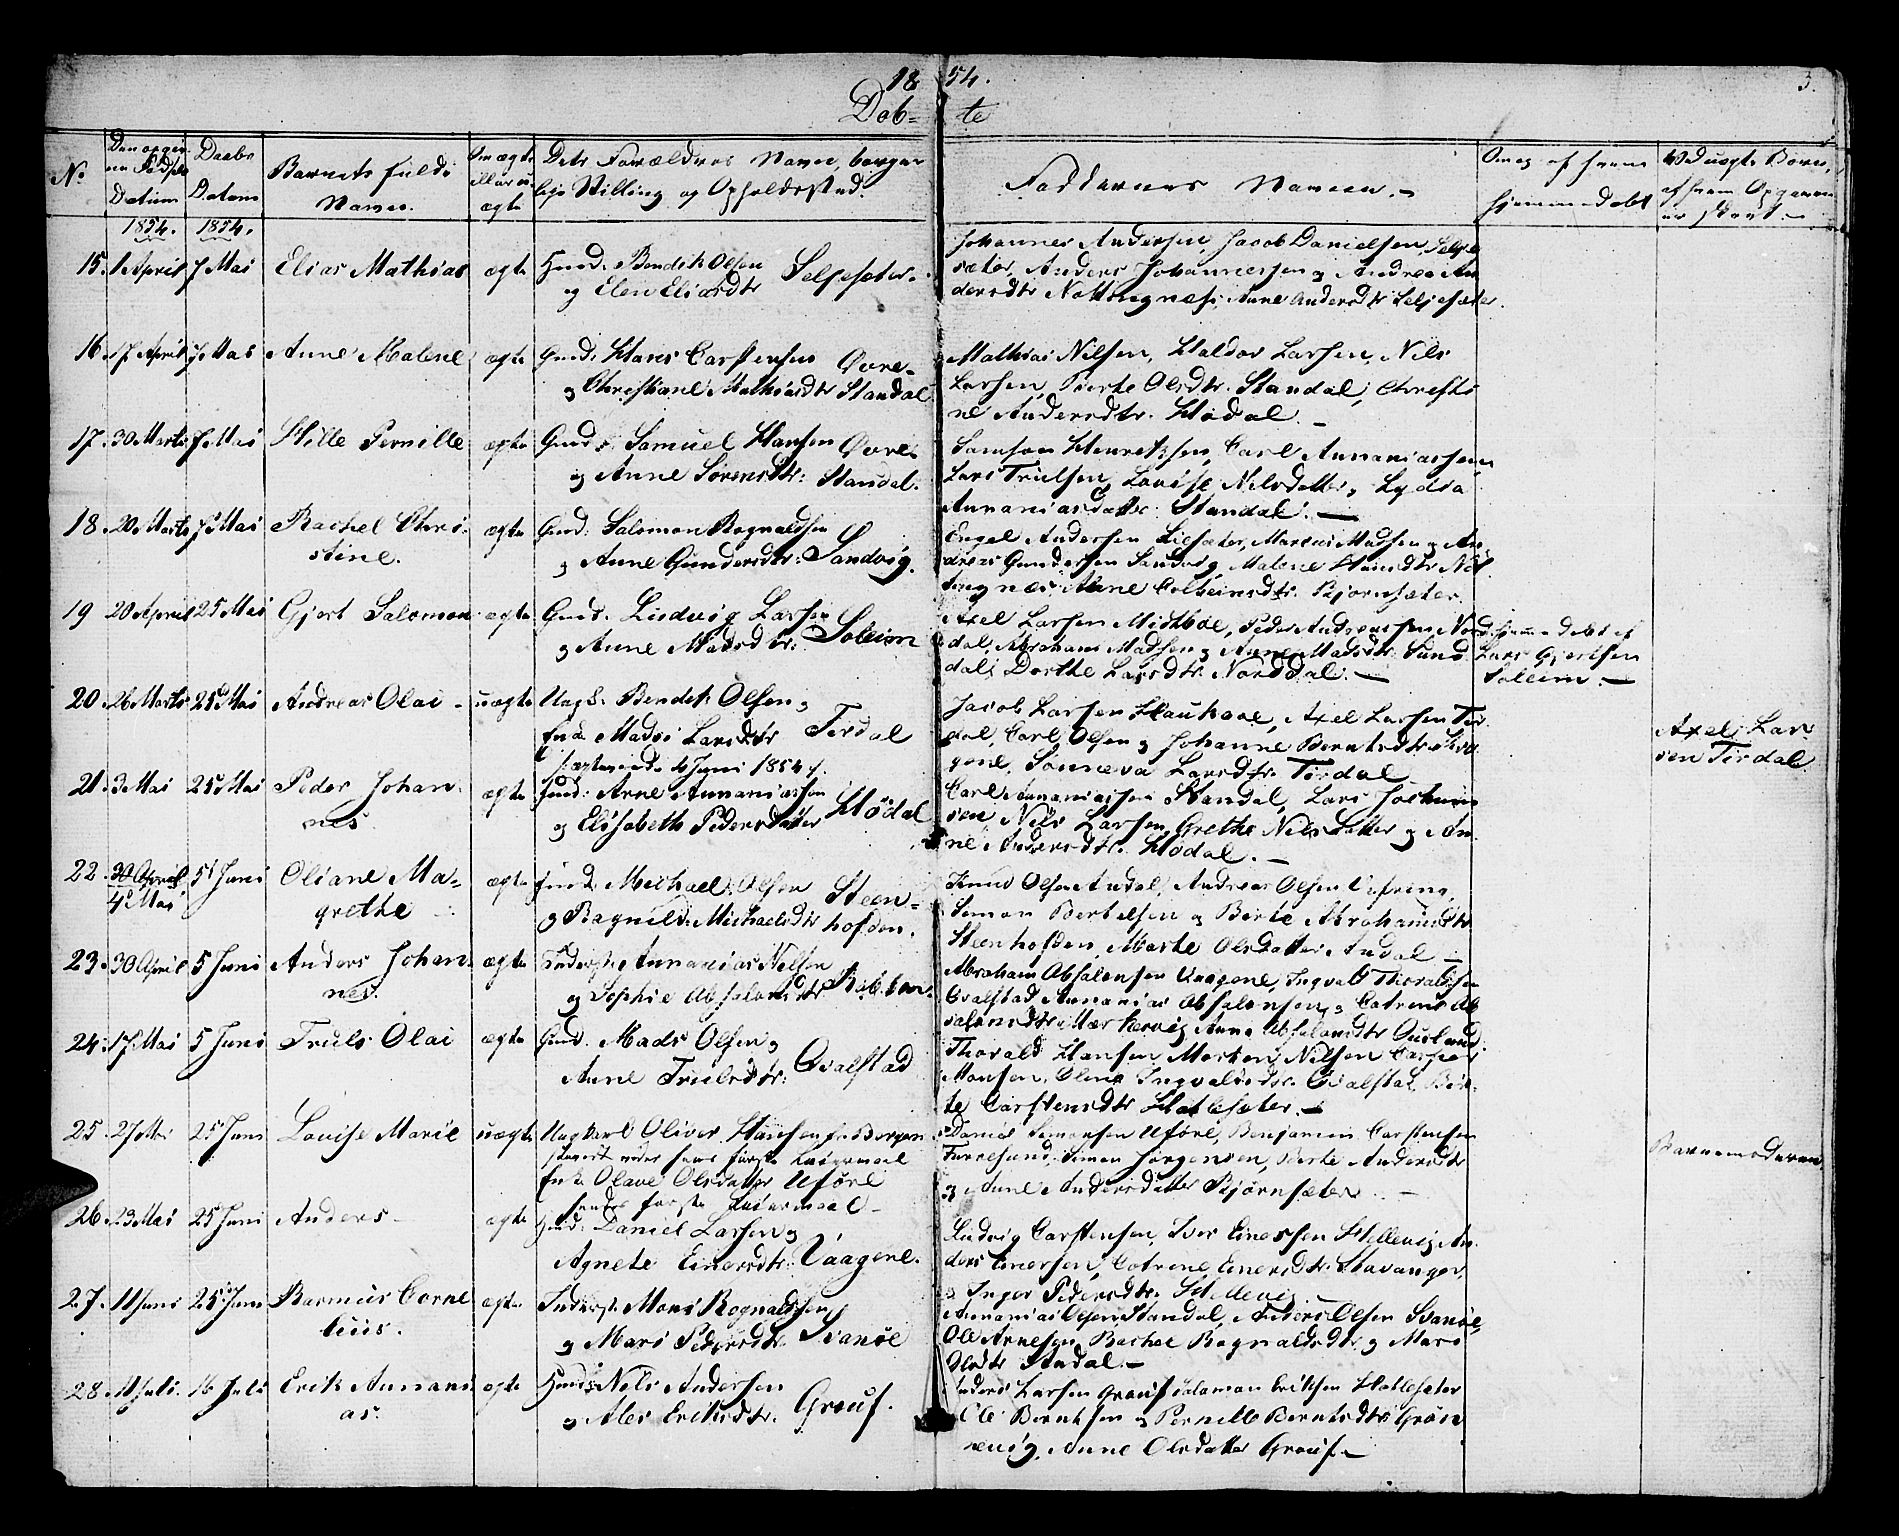 1854.
3.
Døb-te
No
Den opgivne Fødsels Datum
Daabs Datum
Barnets fulde Navn.
Om ægte eller uægte
Dets Forældres Navn, borgerlige Stilling og Opholdssted.
Faddernes Navne.
Om og af hvem hjemmedøbt
Ved uægte Børn, af hvem Opgaven er skeet.
1854. 1854.
15. 1 April 7 Mai Elias Mathias ægte Gmd. Bendik Olsen
og Elen Eliasdtr Seljesæter.
Johannes Andersen, Jacob Danielsen, Selje
sæter, Anders Johannessen og Andrea An
dersdtr Nottingnæs, Anne Andersdtr Seljesæter
16. 17 April 7 Mai Anne Malene ægte Gmd. Hans Carstensen Øvre-
og Christiane Mathiasdtr Standal
Mathias Nilsen, Haldor Larsen, Nils
Larsen, Berte Olsdtr. Standal, Christi
ne Andersdtr. Hødal. -
17. 30 Marts 7 Mai Hille Pernille ægte Gmd. Samuel Hansen Øvre
og Anne Sørensdtr. Standal.
Samson Henriksen, Carl Annaniassen
Lars Trulsen, Lovise Nilsdatter, Lydia
Annaniasdatter Standal. -
18. 20 Marts 7 Mai Rachel Chri-
stine. ægte Gmd: Salomon Rognaldsen
og Anne Gundersdtr: Sandvig.
Engel Andersen Liesæter, Marcus Madsen og An
dreas Gundersen Sandvig Malene Hansdtr Not
tingnæs Anne Colbeinsdtr. Bjørnsæter.
19 20 April 25 Mai Gjert Salomon ægte Gmd. Ludvig Larsen
og Anne Madsdtr: Soleim
Axel Larsen Midtbøe, Peder Andreassen Nord
dal, Abraham Madsen og Anne Madsdtr Sund
dal, Dorthe Larsdtr. Norddal. -
hjemmedøbt af
Lars Gjertsen
Soleim. -
20. 26 Marts 25 Mai Andreas Olai - uægte Ungk. Bendik Olsen og
Madsi Larsdtr Tirdal
Jacob Larsen Haukaae, Axel Larsen Tir
dal, Carl Olsen og Johanne Berntsdtr
Sønneva Larsdtr. Tirdal
Axel Lar
sen Tirdal.
21. 3 Mai 25 Mai Peder Johan-
nes. ægte
4 Juni 1854.
Gmd: Arne Annaniassen
og Elisabeth Pedersdatter Hødal
Carl Annaniassen Standal, Lars Jochum
sen, Nils Larsen, Grethe Nilsdatter og An
ne Andersdtr. Hødal. -
22. 30 April
4 Mai 5 Juni Oliane Ma-
grethe ægte Gmd. Michael Olsen Steen-
og Ragnild Michaelsdtr hofden.
Knud Olsen Andal, Andreas Olsen Vefring,
Simon Bertelsen og Berte Abrahamsdtr
Steenhofden, Marte Olsdatter Andal -
23. 30 April 5 Juni Anders Johan-
nes. ægte Inderst. Annanias Nelsen
og Sophie Absalonsdtr
Abraham Absalonsen Vaagene, Ingvald Thoraldsen
Qvalstad, Annanias Absalonsen, og Catrine Ab
salonsdtr, Anne Absalonsdtr
24. 17 Mai 5 Juni Truls Olai ægte Gmd. Mads Olsen og
Anne Trulsdtr: Qvalstad
Thorald Hansen, Morten Nilsen
Monsen, Oline Ingvaldsdtr. Qvalstad, Ber-
te Carstensdtr Hatlesæter. -
25. 27 Mai 25 Juni Lovise Marie uægte Ungkarl Oliver Hansen fr Bergen
første Leiermaal
Olave Olsdatter Uføre
første Leiermaal -
Daniel Simonsen Uføre, Benjamin Carstensen
Furresund, Simen Jørgensen, Berte Andersdtr
og Anne Andersdatter Bjørnsæter. -
Barnemoderen.
26. 23 Mai 25 Juni Anders - ægte Gmd. Daniel Larsen og
Agnete Einersdtr. Vaagene.
Ludvig Carstensen, Iver Einersen Hellevig, An-
ders Einersen, Catrine Einersdtr. Stavanger,
og Inger Pedersdtr. Hellevig -
27. 11 Juni 25 Juni Rasmus Corne
lius. ægte Inderst. Mons Rognaldsen
og Mari Pedersdtr. Svanøe
Annanias Olsen, Standal, Anders Olsen Svanøe,
Ole Arnesen, Rachel Rognaldsdtr og Mari
Olsdtr Andal. -
28. 11 Juli. 16 Juli Erik Annani
as. ægte Gmd. Nils Andersen
og Ales Eriksdtr. Grouf.
Anders Larsen Grouf Salamon Eriksen Hatlesæter
Ole Berntsen og Pernille Berntsdtr
Anne Olsdatter Grouf -